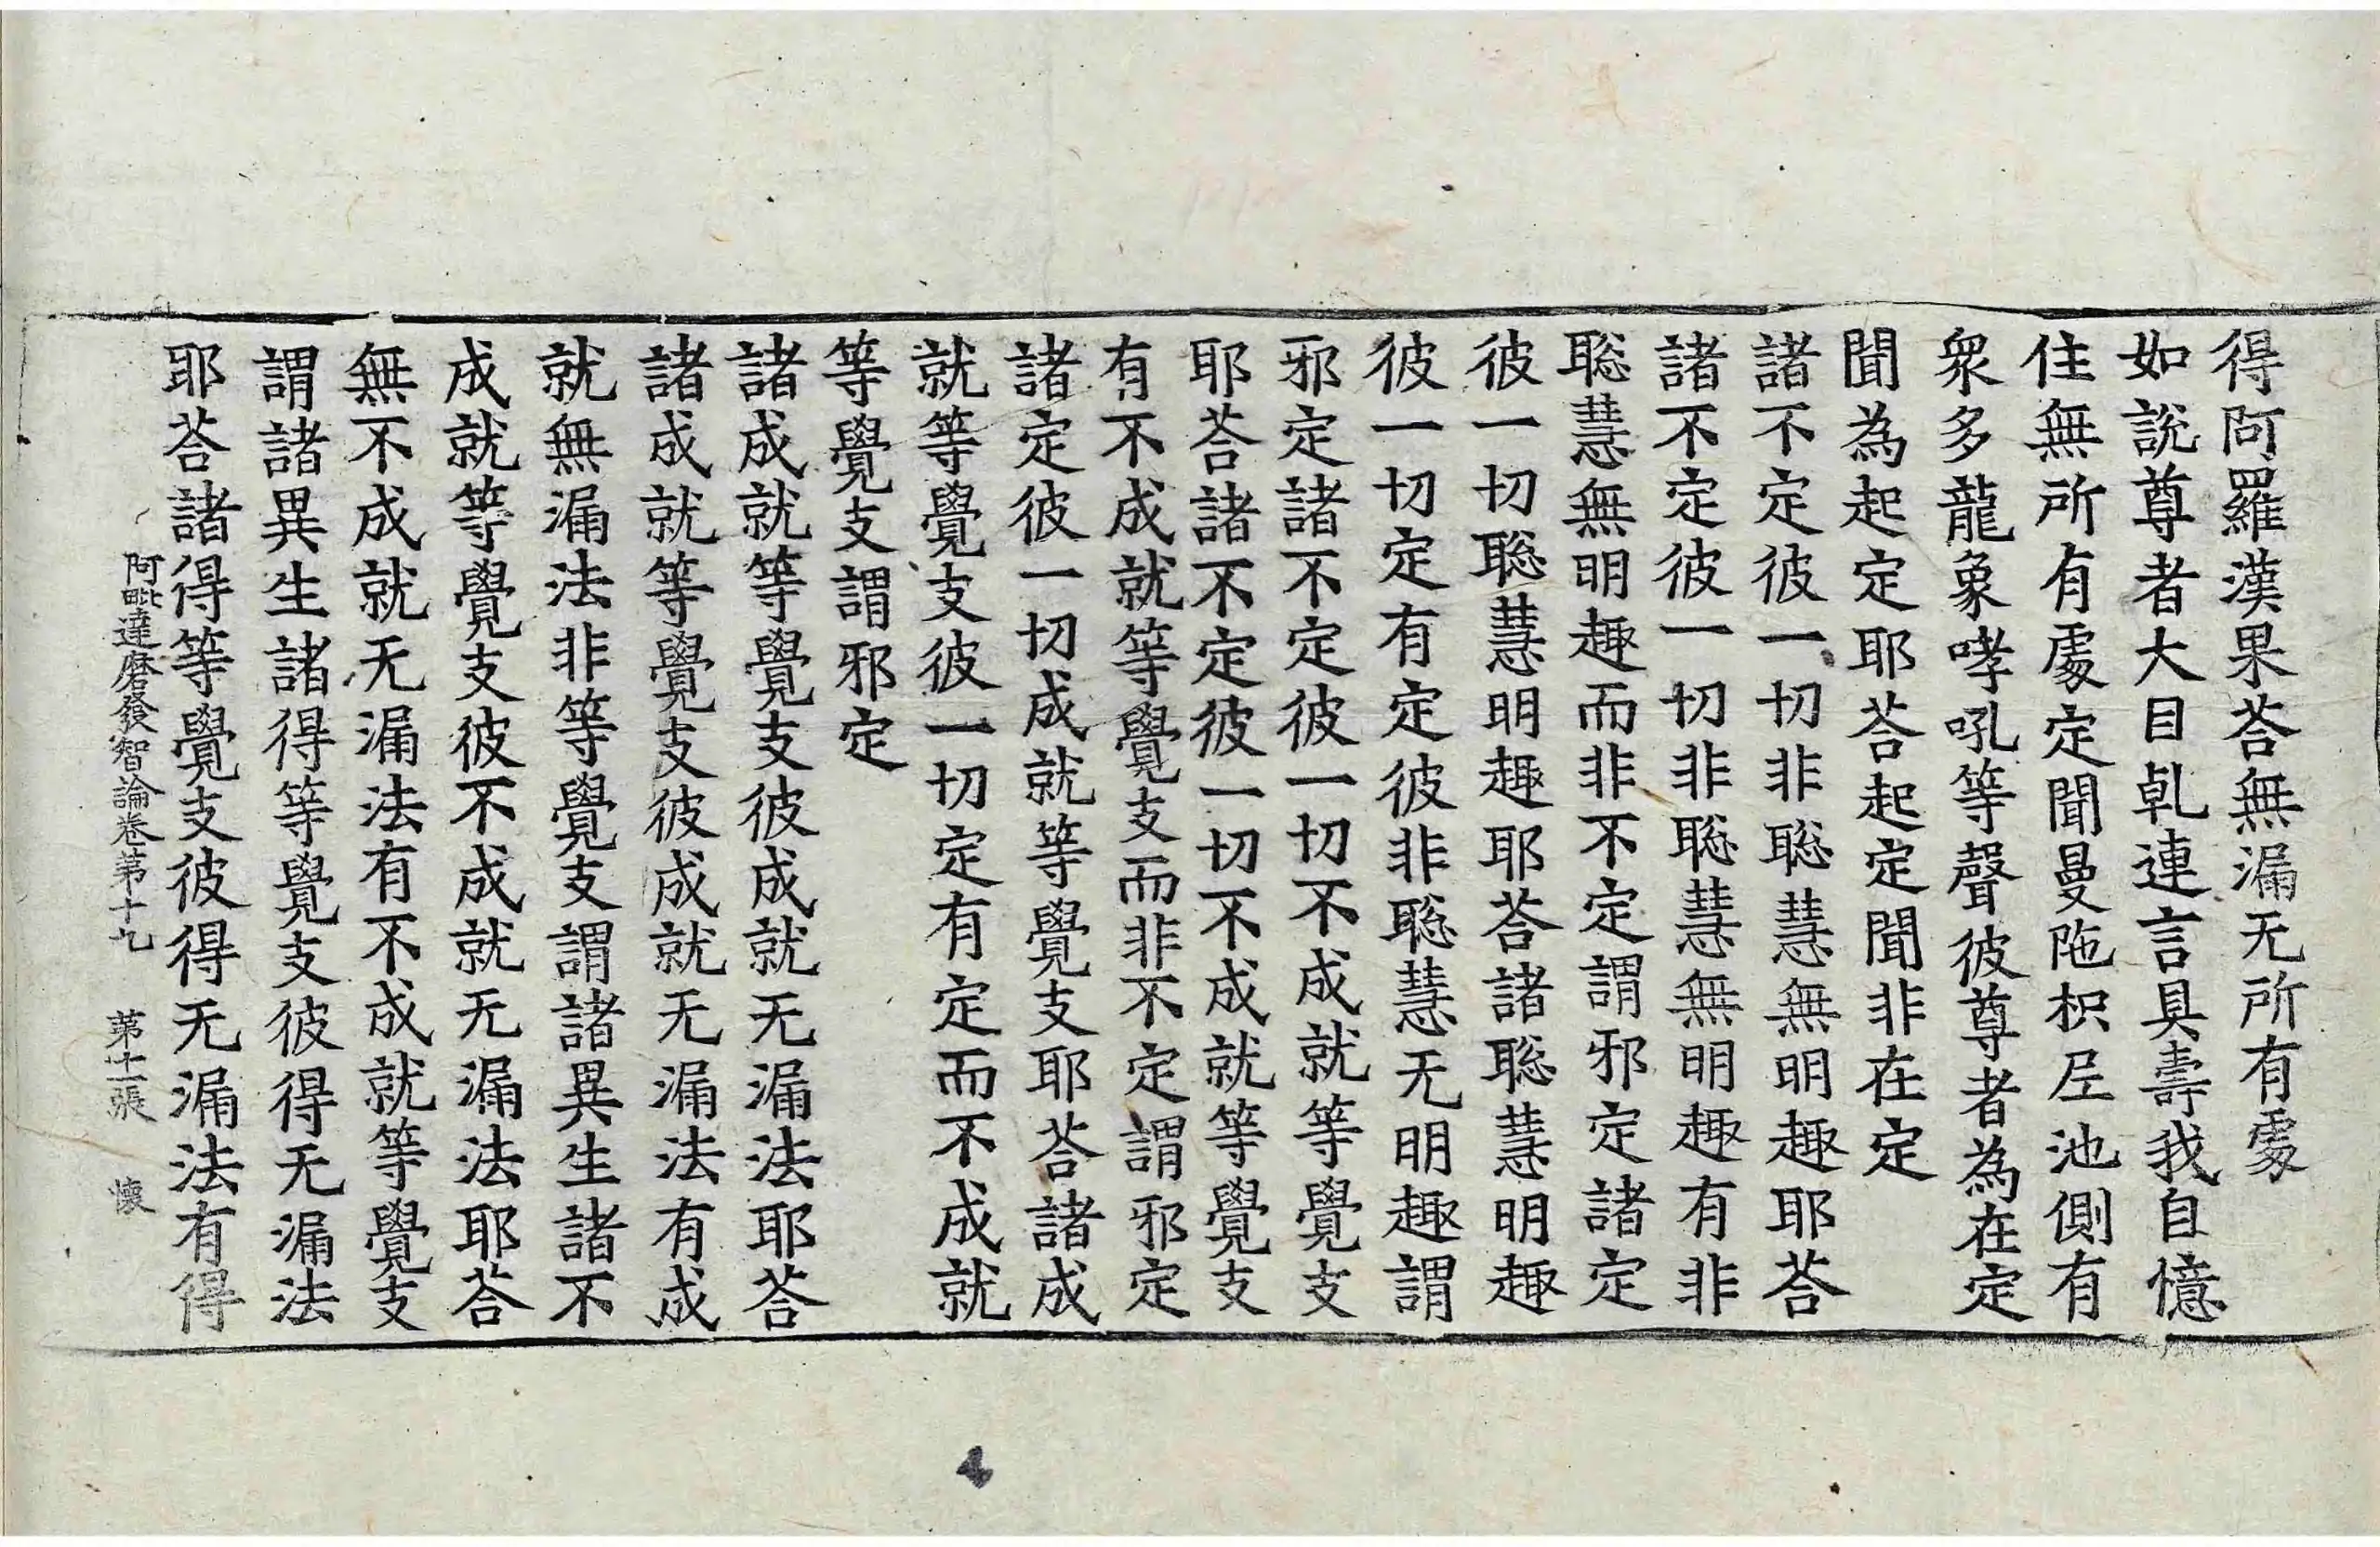 得阿羅漢果荅無漏无所有處
如說尊者大目乹連言具壽我自憶
住無所有處定聞曼陁枳𡰱池側有
衆多龍象哮吼等聲彼尊者為在定
聞為起定耶荅起定聞非在定
諸不定彼一切非聡慧無明趣耶荅
諸不定彼一切非聡慧無明趣有非
聡慧無明趣而非不定謂邪定諸定
彼一切聡慧明趣耶荅諸聡慧明趣
彼一切定有定彼非聡慧无明趣謂
邪定諸不定彼一切不成就等覺支
耶荅諸不定彼一切不成就等覺支
有不成就等覺支而非不定謂邪定
諸定彼一切成就等覺支耶荅諸成
就等覺支彼一切定有定而不成就
等覺支謂邪定
諸成就等覺支彼成就无漏法耶荅
諸成就等覺支彼成就无漏法有成
就無漏法非等覺支謂諸異生諸不
成就等覺支彼不成就无漏法耶荅
無不成就无漏法有不成就等覺支
謂諸異生諸得等覺支彼得无漏法
耶荅諸得等覺支彼得无漏法有得
阿毗達磨發智論卷第十九 第十一張 懷